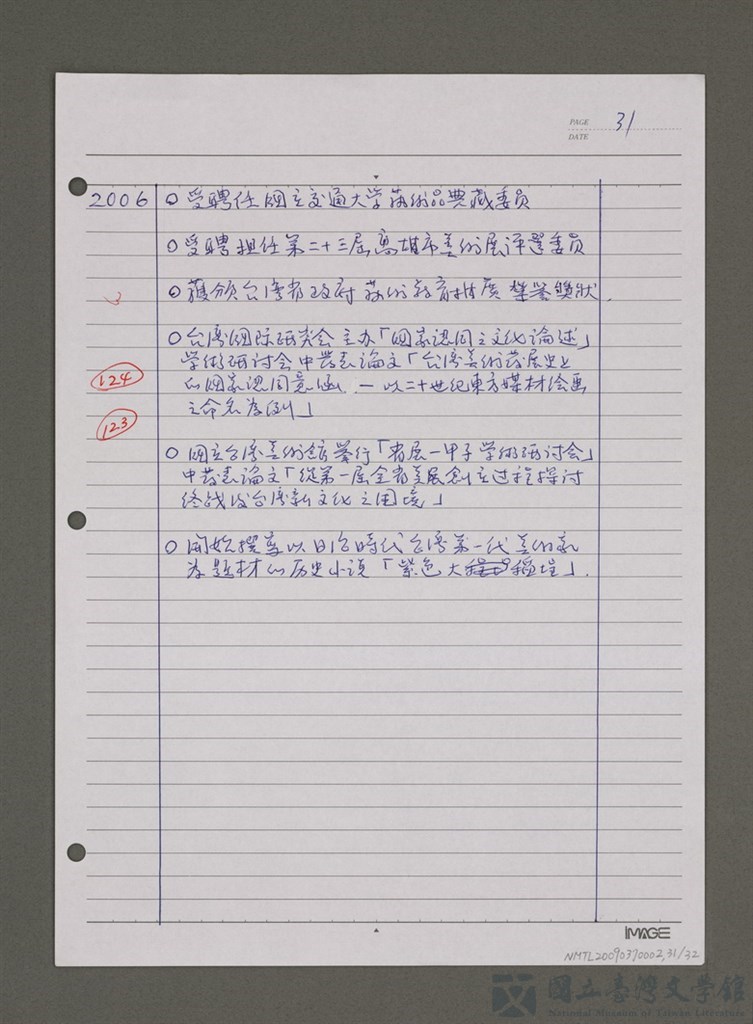 PAGE 31
DATE
2006 ○ 受聘任國立交通大学藝術品典藏委員
○ 受聘担任第二十三屆高雄市美術展评選委員
3 ○ 獲頒台湾省政府藝術教育推廣榮譽獎狀.
○ 台湾国际研究会主办「国家認同之文化論述」
学術研讨会中發表論文「台湾美術發展史上
124 的国家認同意涵 — 以二十世纪東方媒材绘画
之命名為例」
123
○ 国立台湾美術館舉行「省展一甲子学術研讨会」
中發表論文「從第一屆全省美展創立过程探讨
终战後台湾新文化之困境」
○ 開始撰寫以日治時代台湾第一代美術家
為題材的历史小说「紫色大稻埕」.
iMAGE
NMTL20090370002,31/32
國立臺灣文學館
National Museum of Taiwan Literature